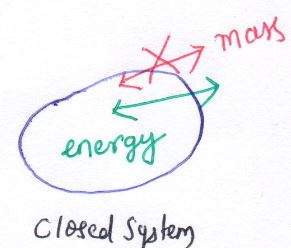 mass
energy
Closed System